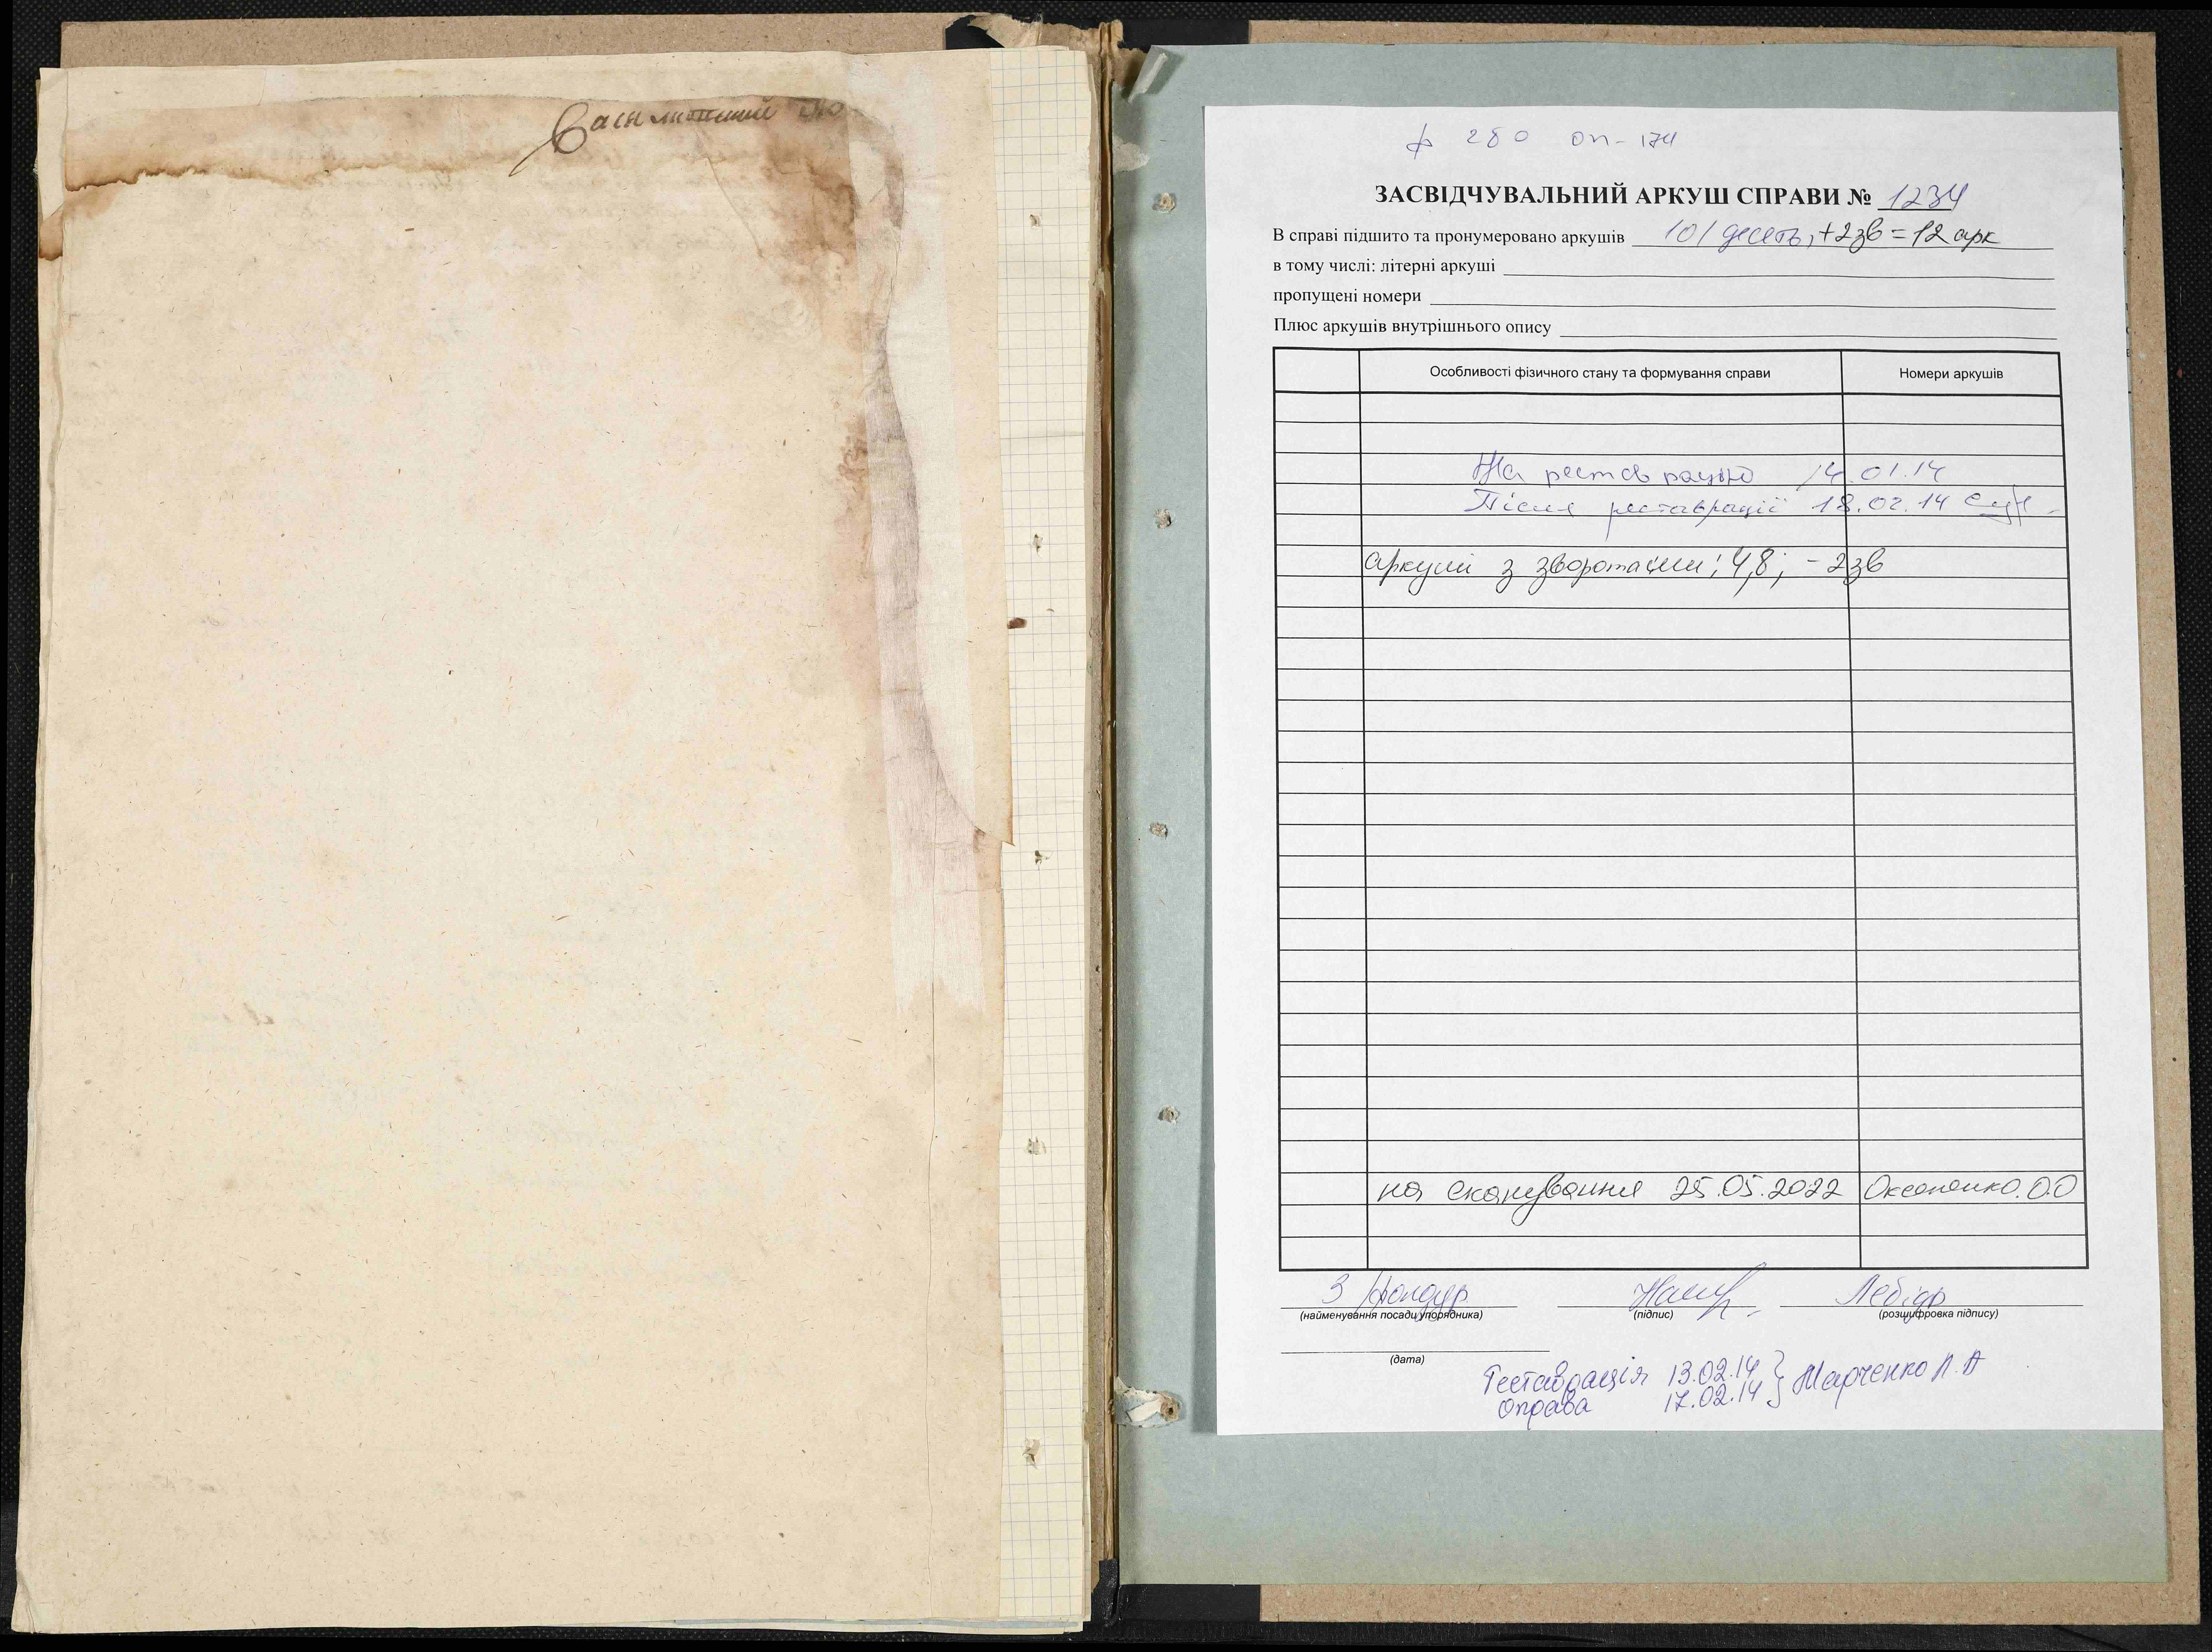 ф 280 оп-174
ЗАСВІДЧУВАЛЬНИЙ АРКУШ СПРАВИ № 1234
В справі підшито та пронумеровано аркушів 10/десять, +2зв = 12 арк
в тому числі: літерні аркуші
пропущені номери
Плюс аркушів внутрішнього опису
Особливості фізичного стану та формування справи Номери аркушів
На реставрацію 14.01.14
Після реставрації 18.02.14
аркуші з зворотами: 4,8; - 2зв
на сканування 25.05.2022 О.О
З фондур Лебідь
(найменування посади упорядника) (підпис) (розшифровка підпису)
(дата)
Реставрація 13.02.14 } Марченко Л. А
Оправа 17.02.14